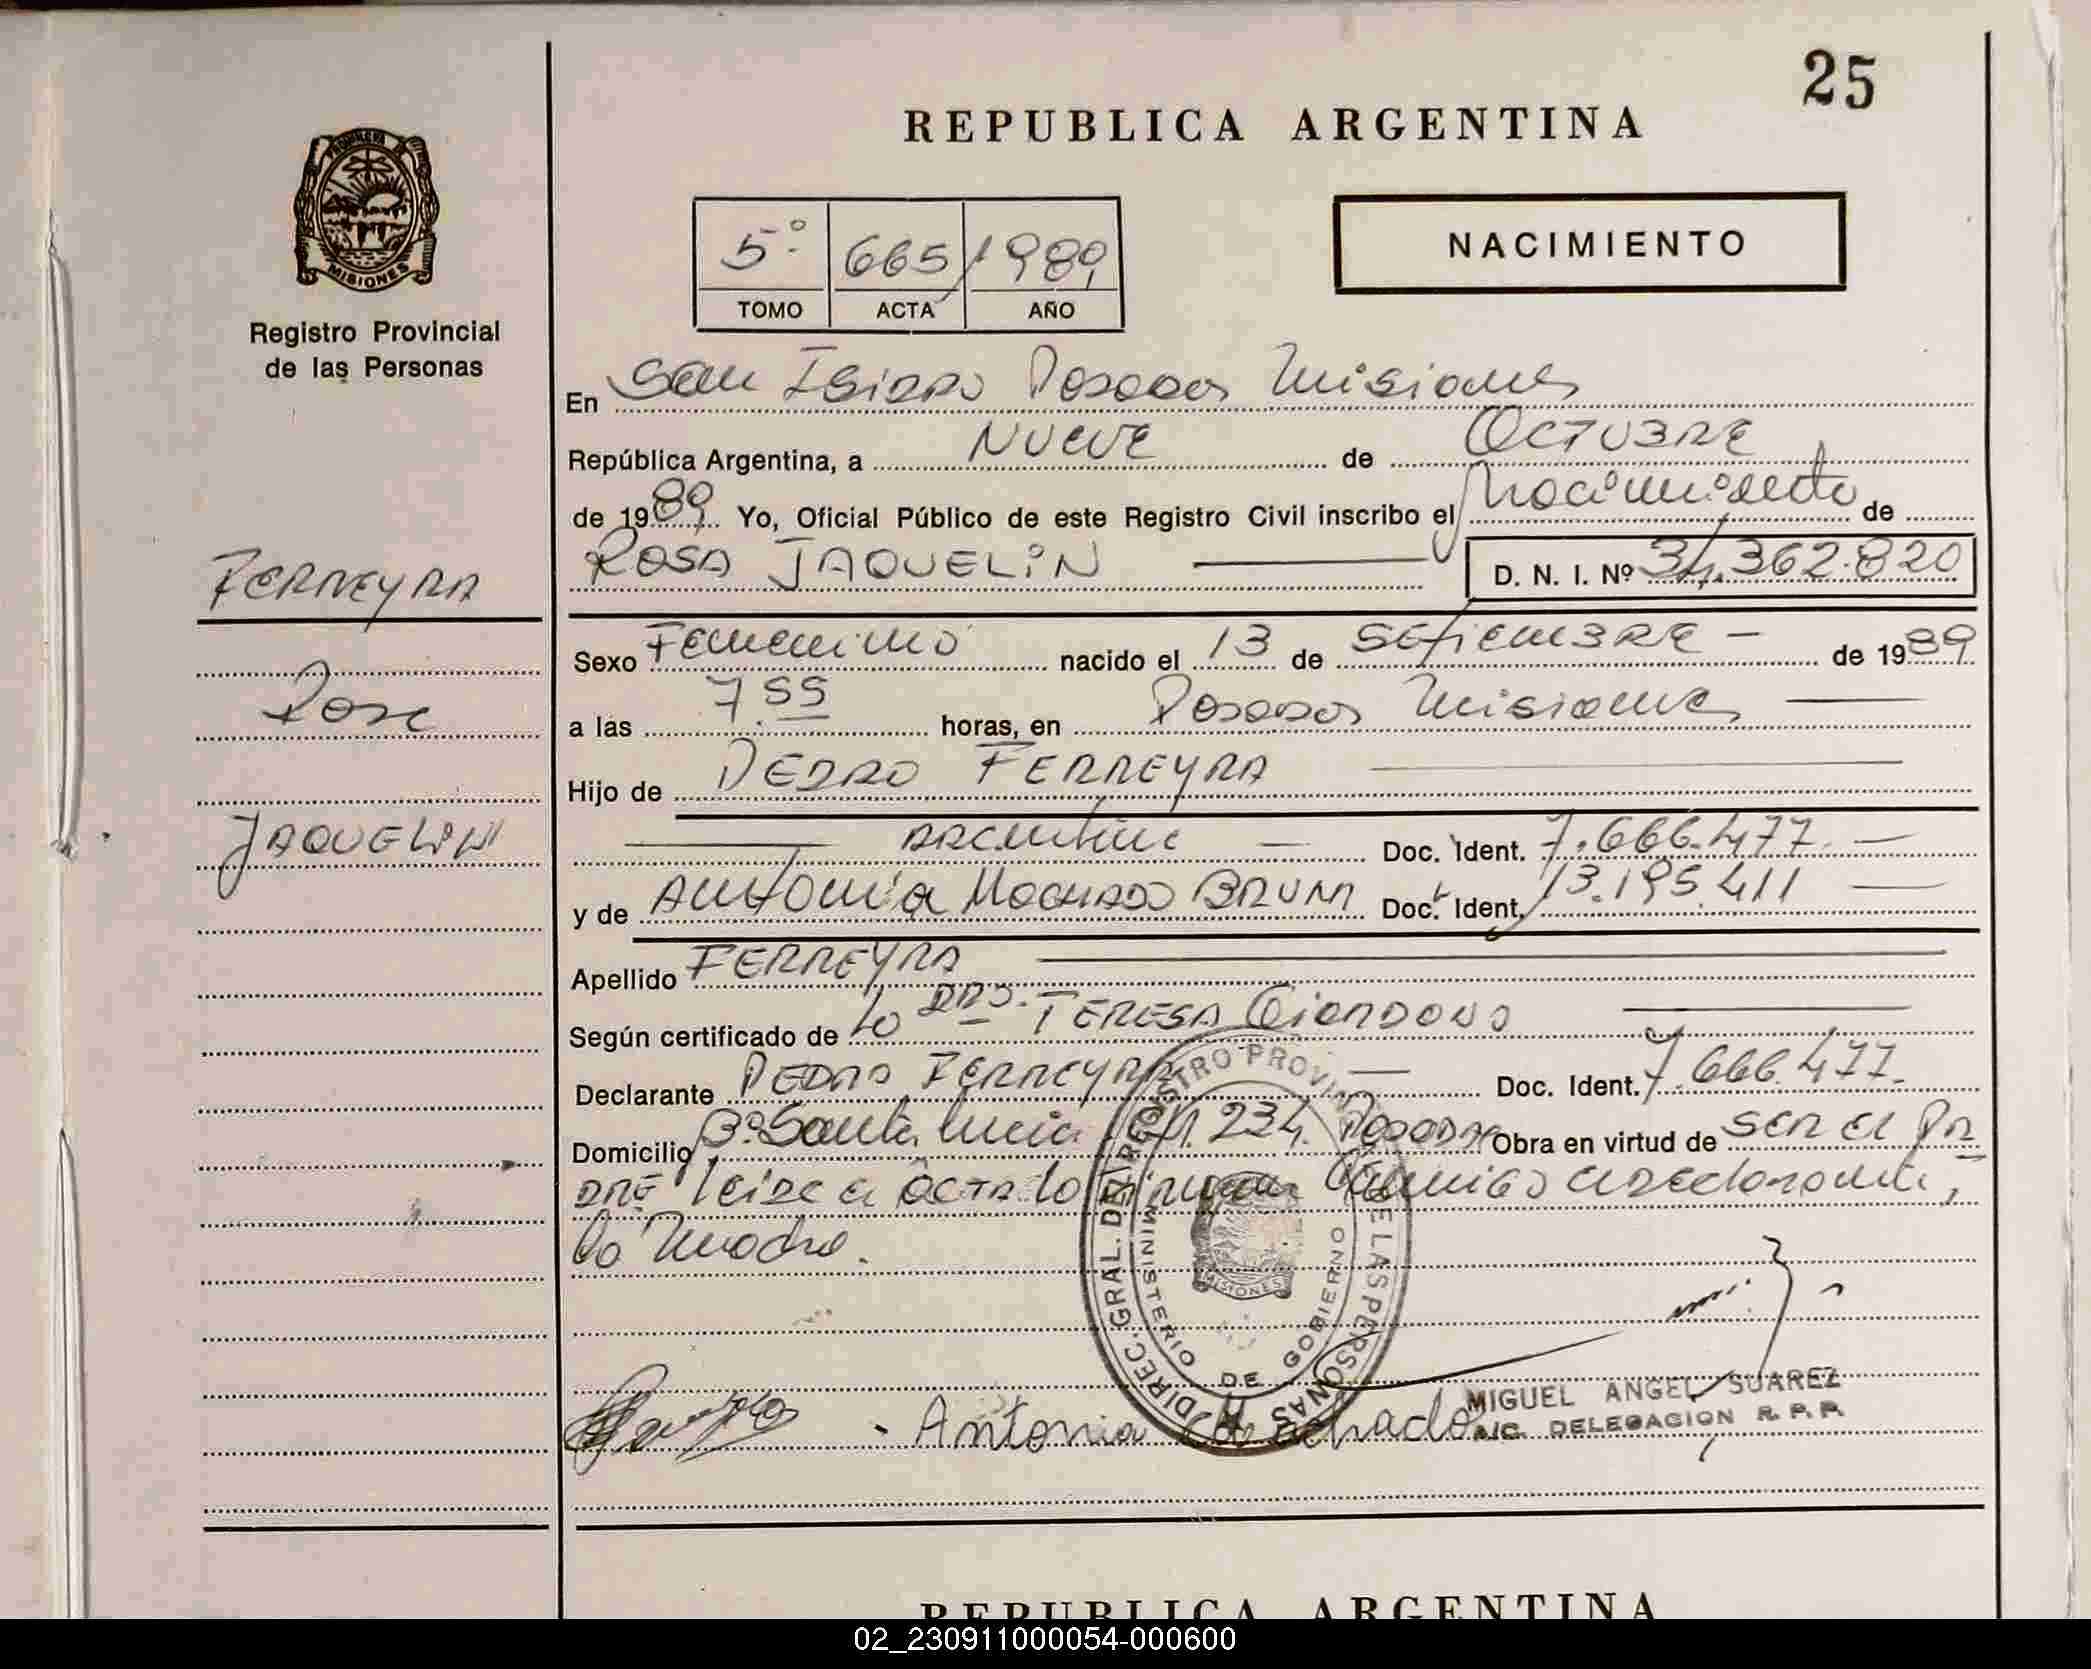 25
REPUBLICA ARGENTINA
PROVINCIA DE
MISIONES
Registro Provincial
de las Personas
5º 665 1989
TOMO ACTA AÑO
NACIMIENTO
En San Isidro Posadas Misiones
República Argentina, a NUEVE de OCTUBRE
de 1989 Yo, Oficial Público de este Registro Civil inscribo el Nacimiento de
ROSA JAQUELIN D. N. I. Nº 34.362.820
FERREYRA
Rosa
JAQUELIN
Sexo Femenino nacido el 13 de SETIEMBRE de 1989
a las 7.55 horas, en Posadas Misiones
Hijo de PEDRO FERREYRA
ARGENTINO Doc. Ident. 7.666.477
y de ANTONIA MACHADO BRUM Doc. Ident. 13.195.411
Apellido FERREYRA
Según certificado de la DRA. TERESA GIORDANO
Declarante PEDRO FERREYRA Doc. Ident. 7.666.477.
Domicilio Bº Santa Lucia CH. 234. POSADAS Obra en virtud de SER El PA
DRE leida el ACTA la firman Conmigo el declarante,
la Madre.
DIREC. GRAL. DEL REGISTRO PROVINCIAL DE LAS PERSONAS
MINISTERIO DE GOBIERNO
MISIONES
Antonia Machado
MIGUEL ANGEL SUAREZ
A/C. DELEGACION R. P. P.
REPUBLICA ARGENTINA
02_230911000054-000600